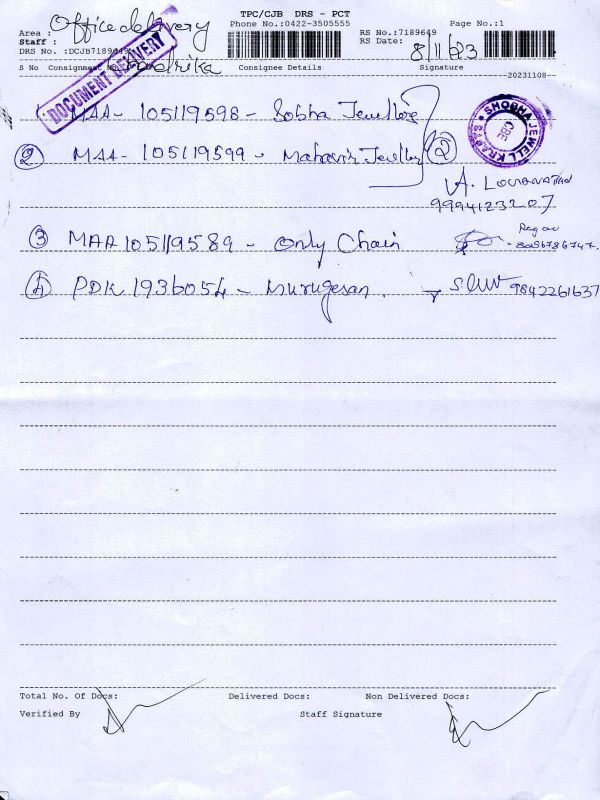 TPC/CJB DRS - PCT
Office delivery
Area :
Phone No.:0422-3505555
Page No.:1
RS No.:7189649
Staff :
RS Date: 8/11/23
DRS No. :DCJB7189649
DOCUMENT DELIVERY
S No Consignment No Consignee Details Signature
20231108
MAA- 105119598 - Sobha Jewellers
SHOBHA JEWELL KRAFTS
CBE
② MAA- 105119599 - Mahavir Jewellers ②
A. LOGANATHAN
9994123207
③ MAA 105119589 - Only Chain
④ PDK 1936054 - Murugesan. 9842261637
Total No. Of Docs: Delivered Docs: Non Delivered Docs:
Verified By Staff Signature